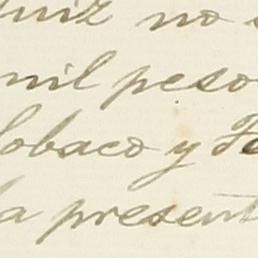 ruiz no s
mil peso
lobaco y Fe
la present